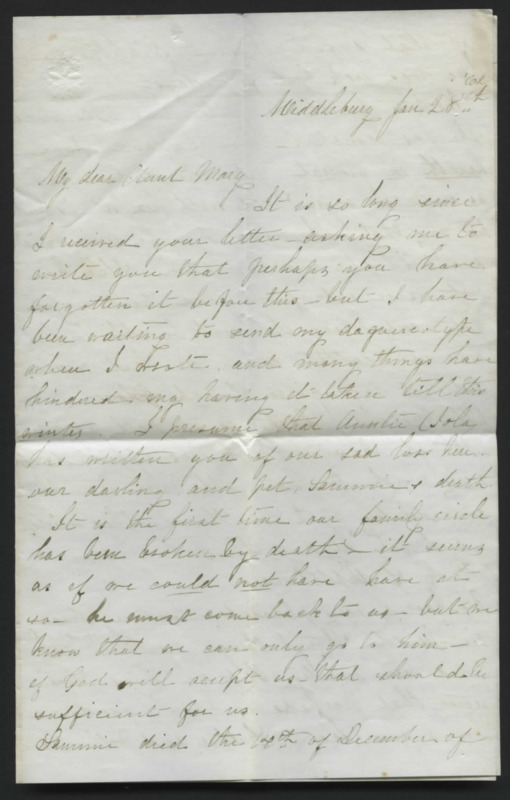 Middlebury Jan 28th
My dear Aunt Mary
It is so long since
I received your letter asking me to
write you that perhaps you have
forgotten it before this - but I have
been waiting to send my daguereotype
when I wrote and many things have
hindered my having it taken till this
winter. I presume that Auntie
has written you of our sad loss here
our darling and pet Sammie's death
It is the first time our family circle
has been broken by death - it seems
as if we could not have have it
so - he must come back to us - but we
know that we can only go to him -
if God will accept us - that should be
sufficient for us.
Sammie died the of December of